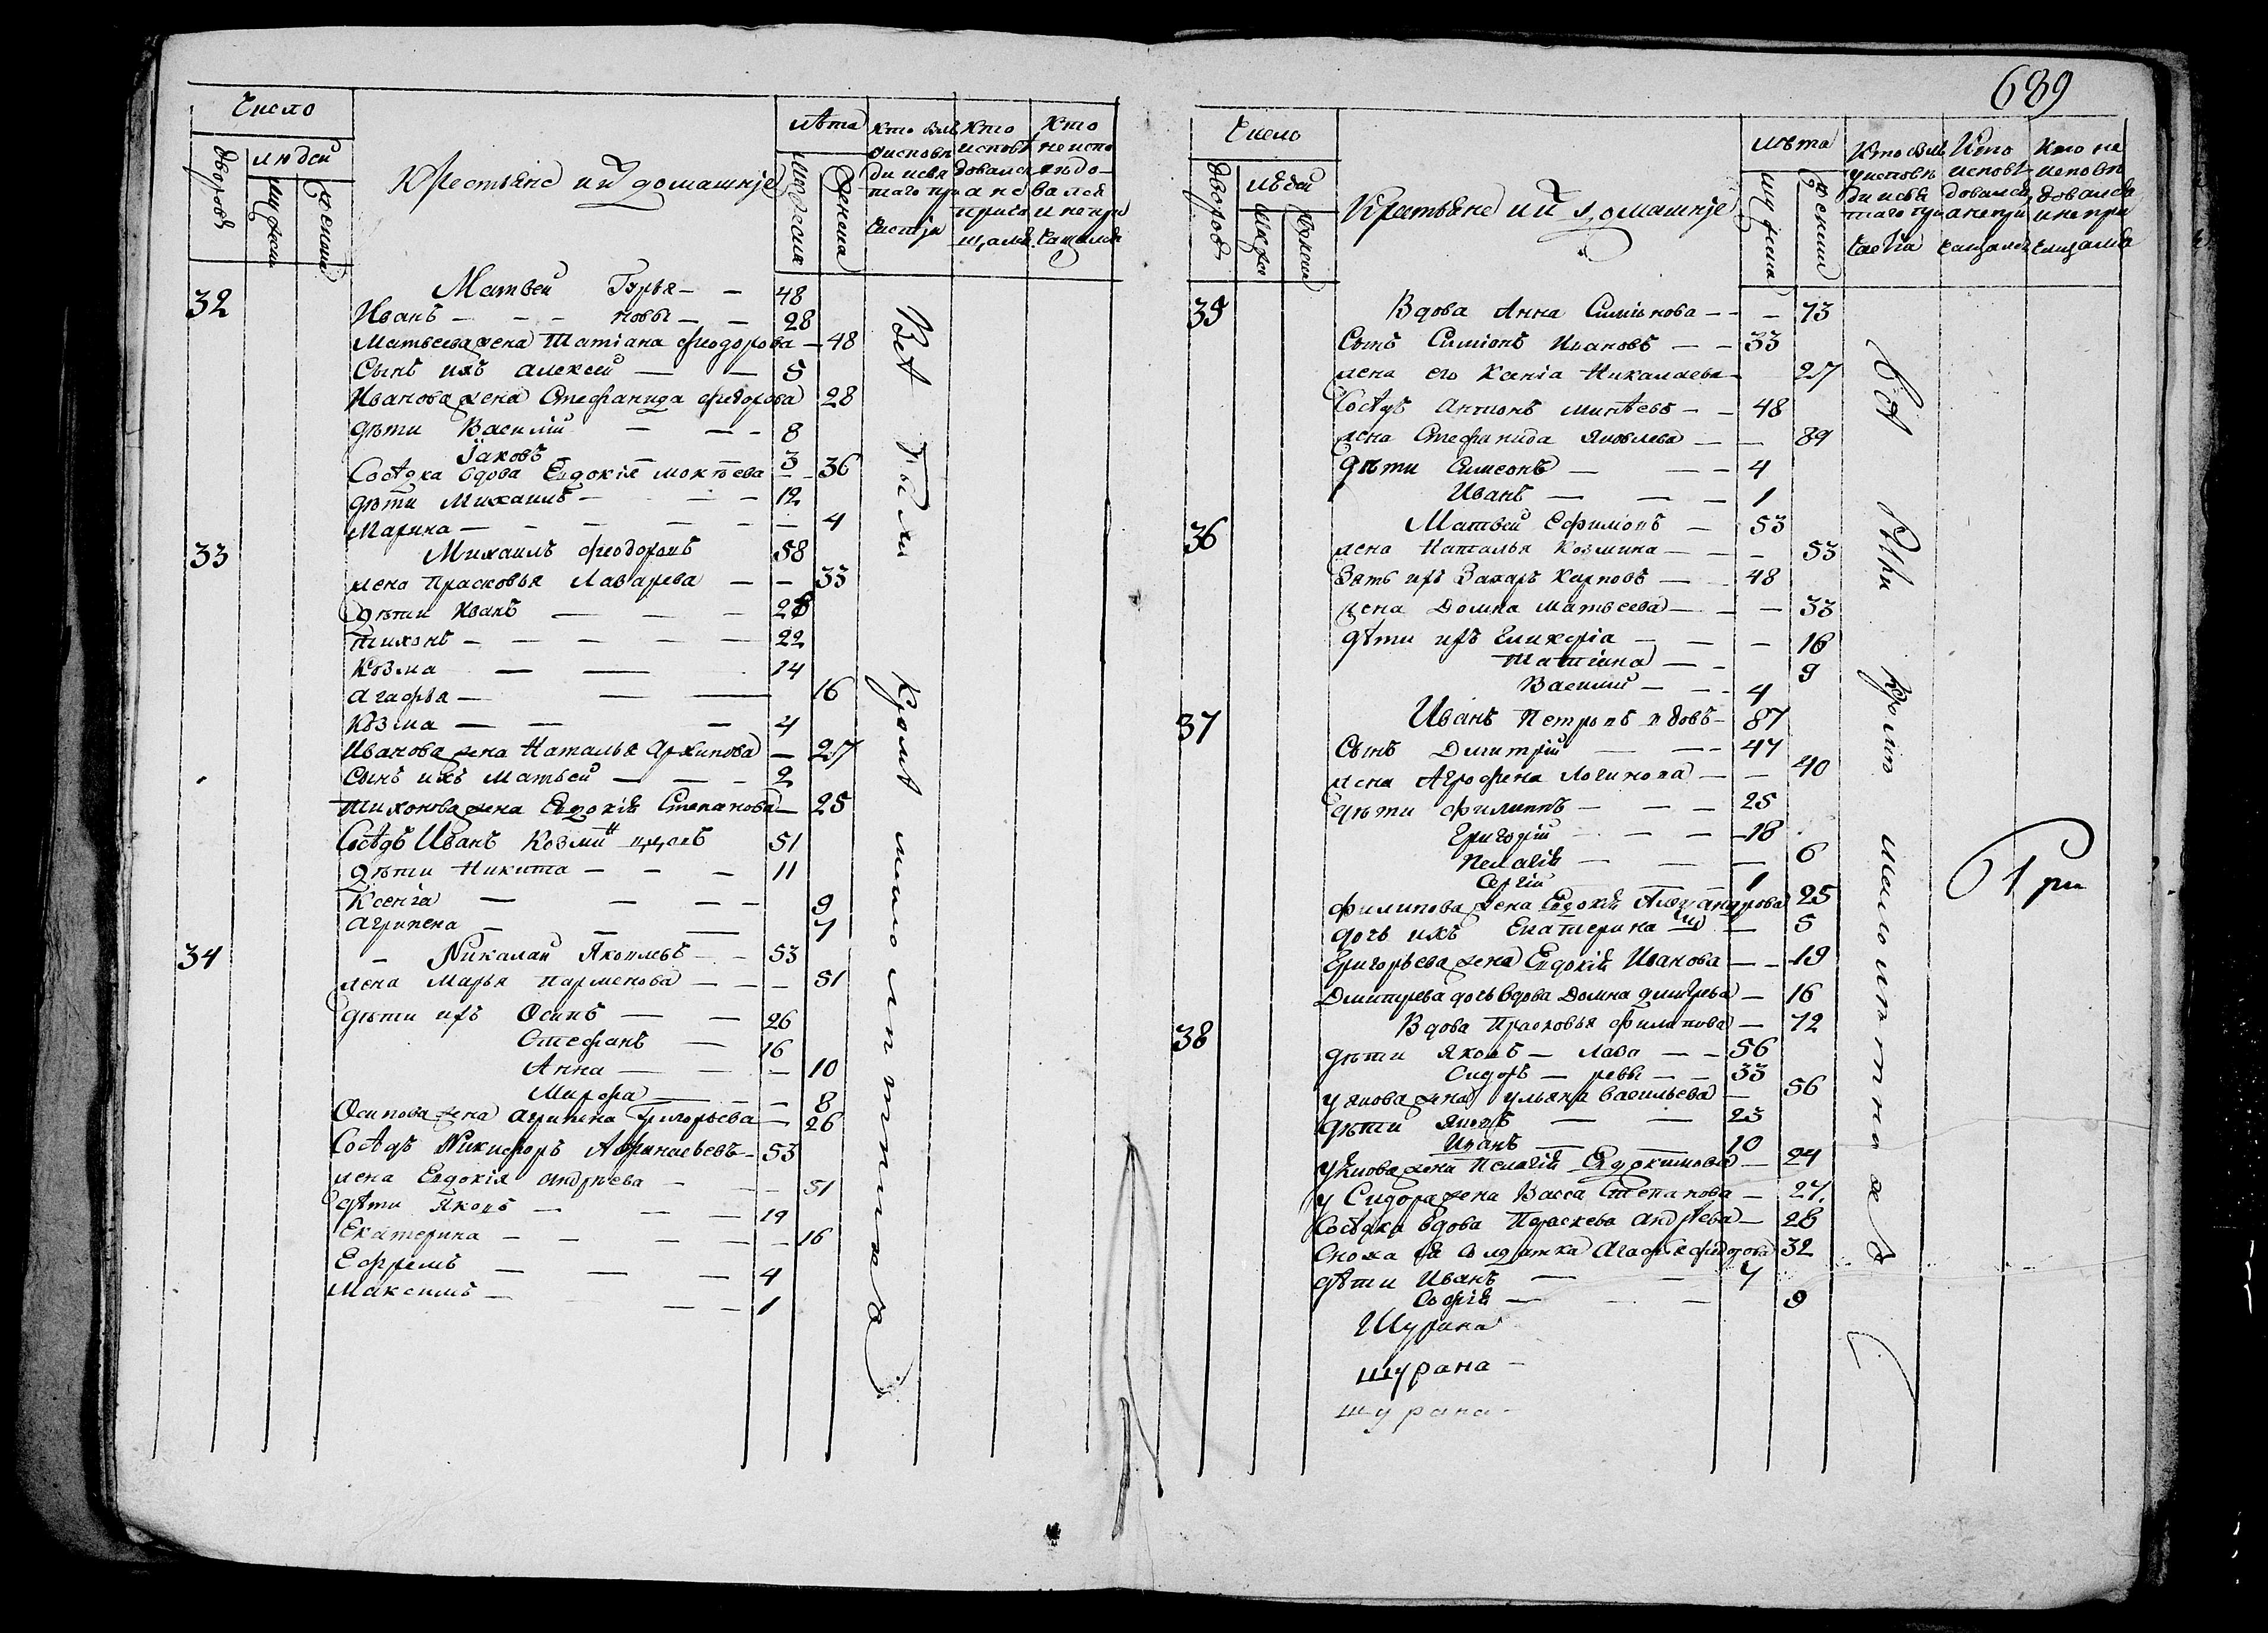 Число
людей
дворовъ
мужеска
женска
Крестьяне и ихъ домашніе
лѣта
мужеска
женска
Кто былъ у исповѣди и святаго причастія
Кто исповѣдовался а не причащался
Кто не исповѣдовался и не причащался
32
Матвей Гурья — — 48
Иванъ — — — новы — — 28
Матвеева жена Татіана Феодорова — 48
Сынъ ихъ Алексей — — 5
Иванова жена Стефанида Фидорова 28
дѣти Василій — — — 8
Іаковъ — 3
Сосѣдка вдова Евдокія Мокѣева — 36
дѣти Михаилъ — — — 12
Марина — — — — — — 4
33
Михаилъ Феодоровъ 58
жена Прасковья Лазарева — — 33
дѣти Иванъ — — — 28
Тихонъ — — — — — 22
Козма — — 14
Агафья — — — 16
Козма — — — 4
Иванова жена Наталья Архипова — 27
Сынъ ихъ Матвей — — — 2
Тихонова жена Евдокія Степанова — 25
Сосѣдъ Иванъ Козмин 51
дѣти Никита — — — 11
Ксенія — — — — 9
Агрипена — — — 7
34
— Никалай Яковлевъ — — 53
жена Марья Парменова — — — 51
дѣти ихъ Осипъ — — 26
Стефанъ — 16
Анна — — — 10
8
Осипова жена Агрипена Григорьева — 26
Сосѣдъ Никифоръ Афанасьевъ — 53
жена Евдокія Андрѣева — — 51
дѣти Яковъ — — — 19
Екатерина — — — — — 16
Ефремъ — — — 4
Максимъ — — — 1
Всѣ были кромѣ малолѣтнихъ
689
Число
людей
дворовъ
мужеска
женска
Крестьяне и ихъ домашніе
лѣта
мужеска
женска
Кто былъ у исповѣди и святаго причастія
Кто исповѣдовался а не причащался
Кто не исповѣдовался и не причащался
35
Вдова Анна Симіонова — — — 73
Сынъ Симіонъ Ивановъ — — 33
жена его Ксенія Николаева — 27
Сосѣдъ Антионъ Минѣевъ — — 48
жена Стефанида Яковлева — — 89
дѣти Симеонъ — — — 4
Иванъ — — — 1
36
Матвей Ефимовъ — 53
жена Наталья Козмина — — — 53
Зять ихъ Захаръ Карповъ — — 48
жена Домна Матвеева — — — 33
дѣти ихъ Гликерія — — — 16
Татіана — — 9
Василій — — — 4
37
Иванъ Петровъ вдовъ — 87
Сынъ Дмитрій — — — 47
жена Агрофена Логинова — — 40
дѣти Филиппъ — — — 25
Григорій — — — 18
Пелагія — — — 6
Сергій — — 1
Филипова жена Евдокія Александрова 25
дочь ихъ Екатерина — — 5
Григорьева жена Евдокія Иванова — — 19
Дмитрева дочь вдова Домна Дмитрева — 16
38
Вдова Прасковья Филипова — 72
дѣти Яковъ — Лава — — 56
Сидоръ — ревы — — 33
у Якова жена Ульяна Васильева — 56
дѣти Яковъ — — 23
Иванъ — — 10
у Якова жена Пелагія Евдокимова — 24
у Сидора жена Васса Степанова — 27
Сосѣдка вдова Параскева Андрѣева — 28
Сноха ея солдатка Агафья Фидорова 32
дѣти Иванъ — — 7
Софія — — — 9
Шурина
шурана —
шурана —
Всѣ были кромѣ малолѣтнихъ